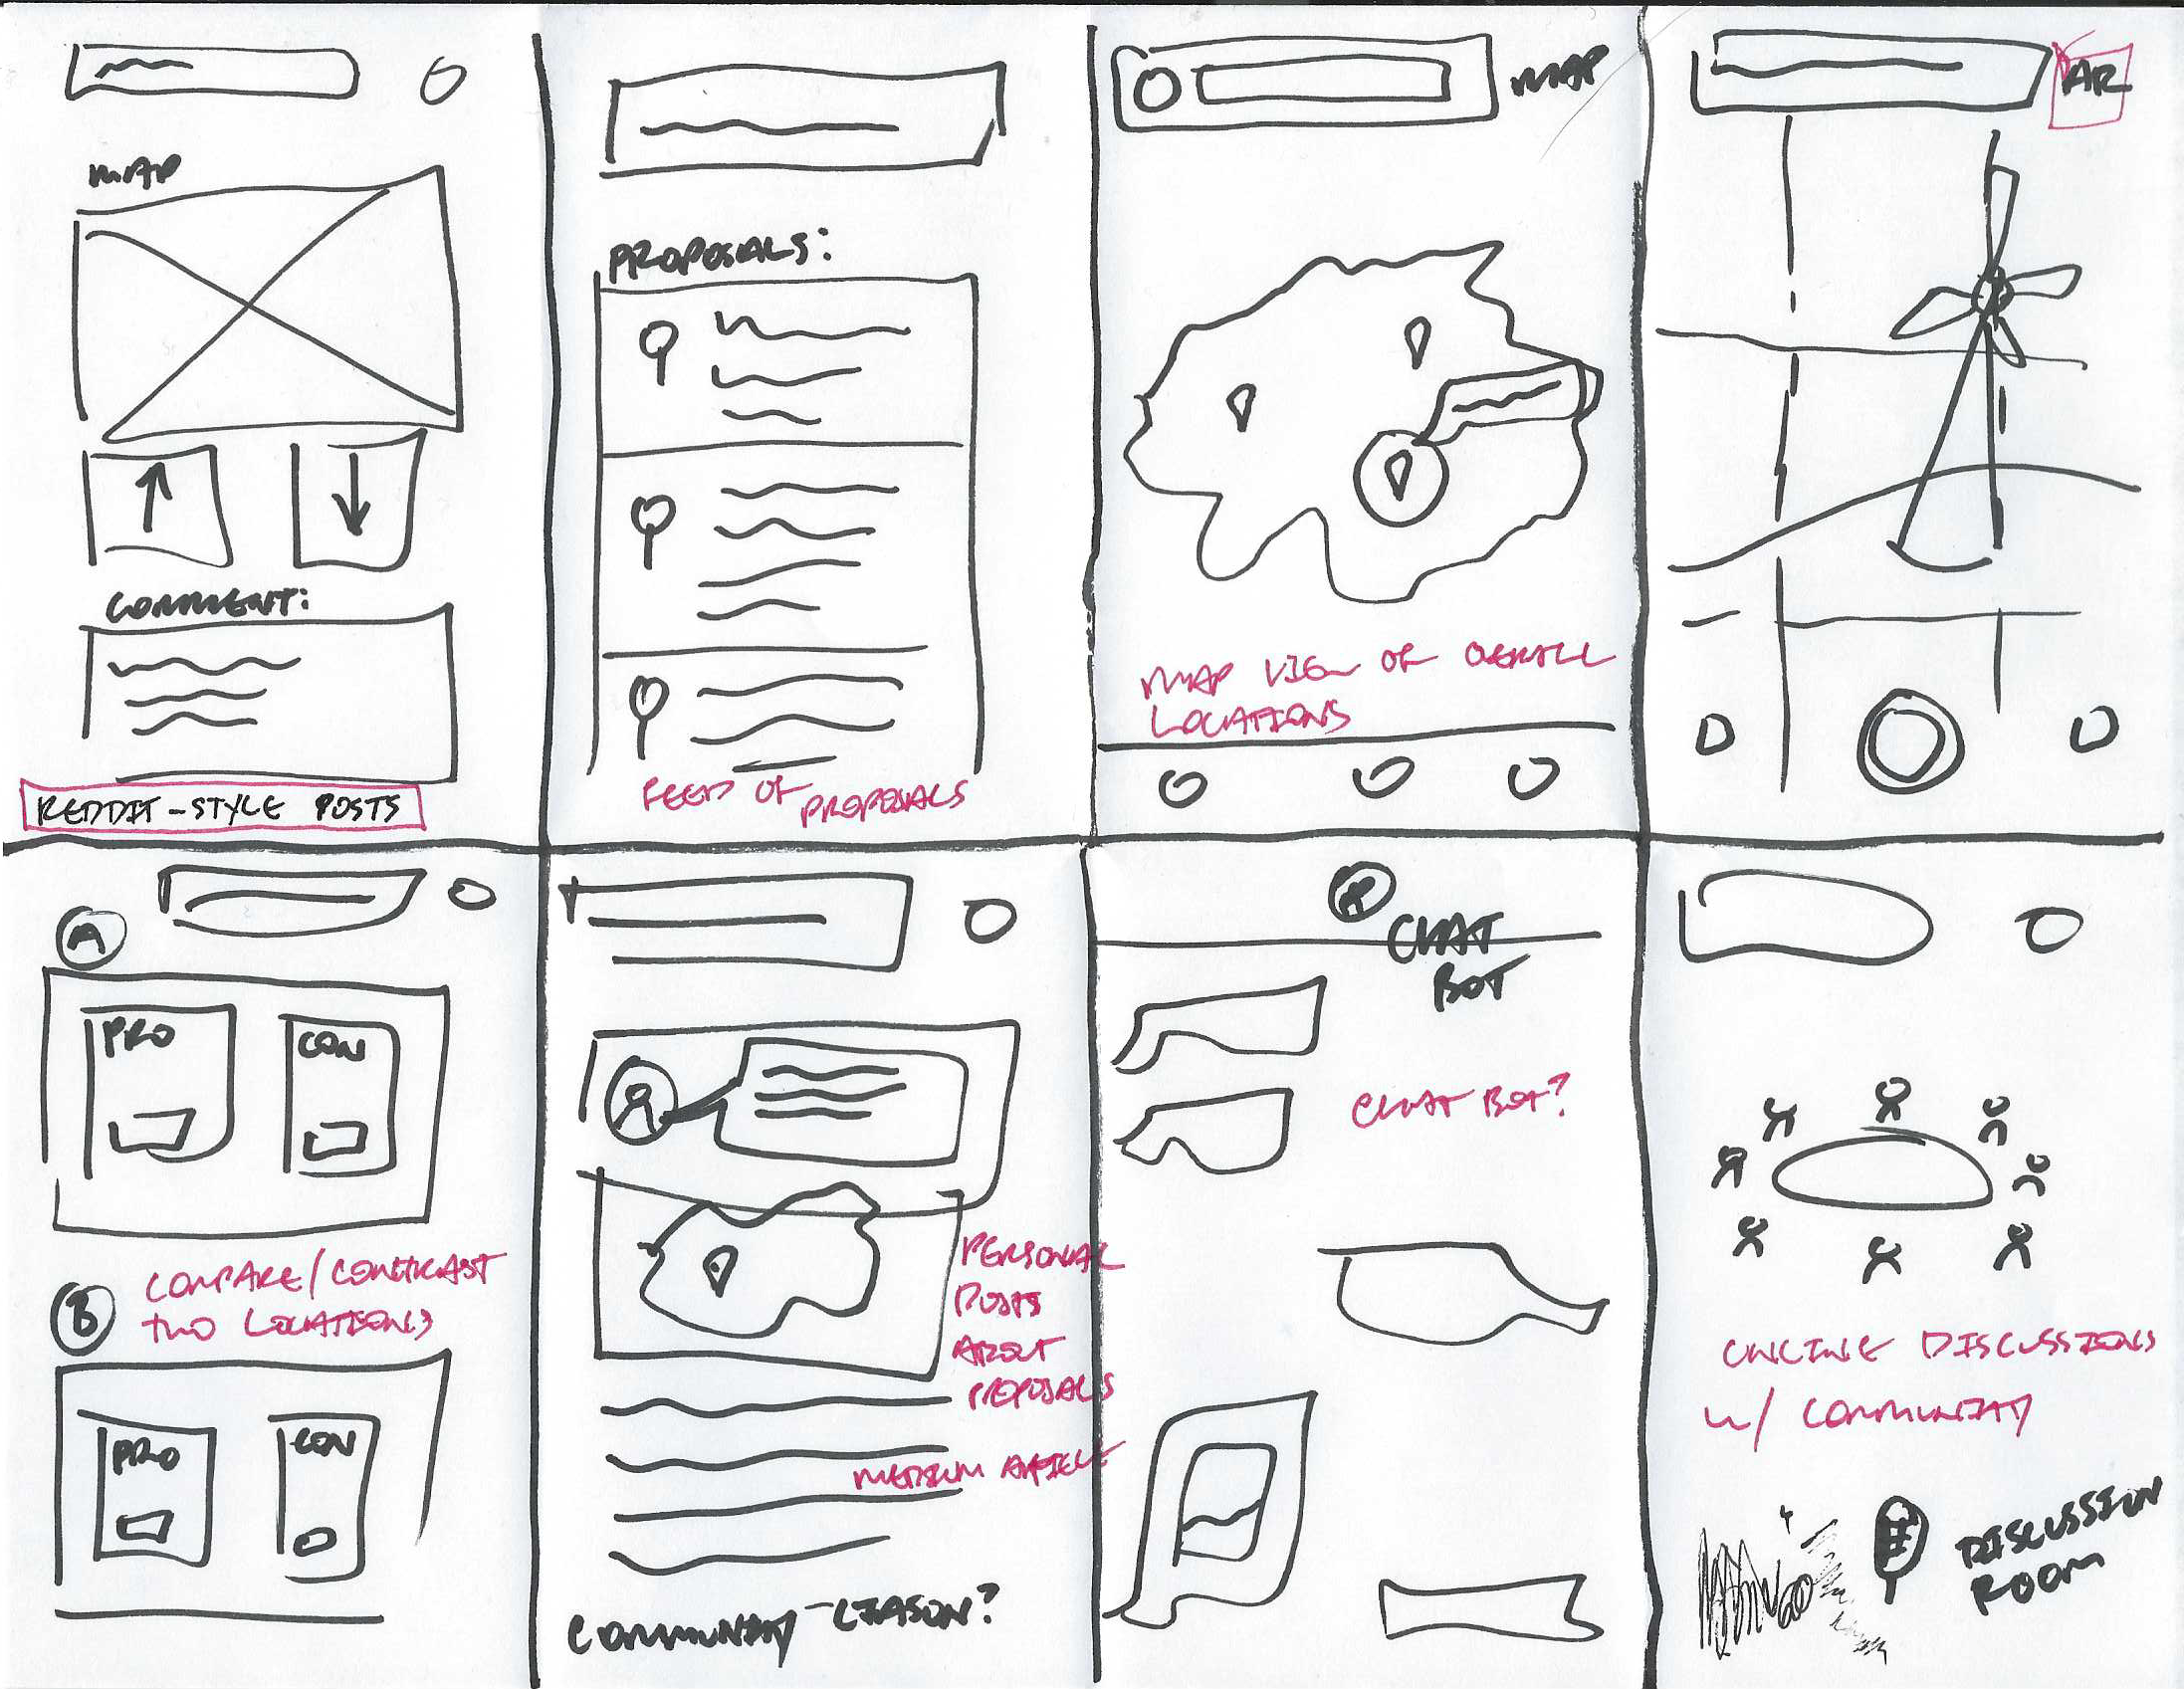 MAP
COMMENT:
REDDIT-STYLE POSTS
PROPOSALS:
FEED OF
PROPOSALS
MAP
MAP VIEW OF OERALL
LOCATIONS
AR
A
PRO CON
COMPARE/CONTRAST
TWO LOCATIONS
B
PRO CON
PERSONAL
POSTS
ABOUT
PROPOSALS
MEDIUM ARTICLE
COMMUNITY-LIASON?
CHAT
BOT
CHAT BOT?
ONLINE DISCUSSIONS
W/ COMMUNITY
DISCUSSION
ROOM